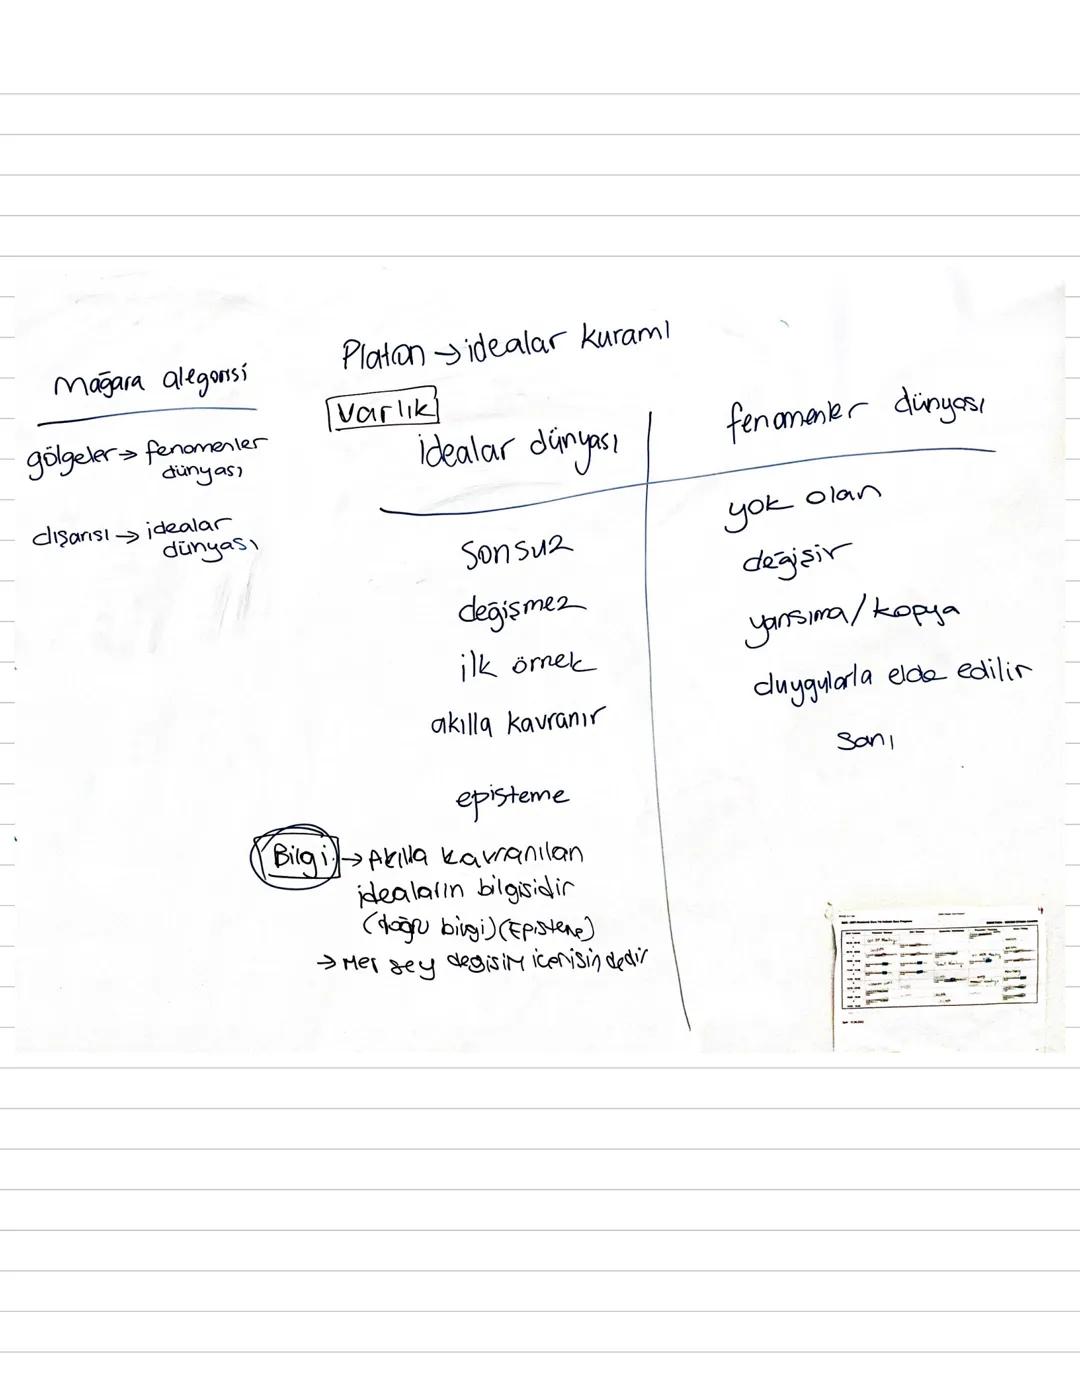 Platon → idealar kuramı
Mağara alegorisi
gölgeler → fenomenler
dünyası
dışarısı → idealar
dünyası
Varlık
idealar dünyası
sonsuz
değişmez
ilk örnek
akılla kavranır
episteme
fenomenler dünyası
yok olan
değişir
yansıma/kopya
duygularla elde edilir
Sanı
Bilgi → Akılla kavranılan
ideaların bilgisidir
(doğru bilgi) (Episteme)
→ Her şey değişim içerisindedir